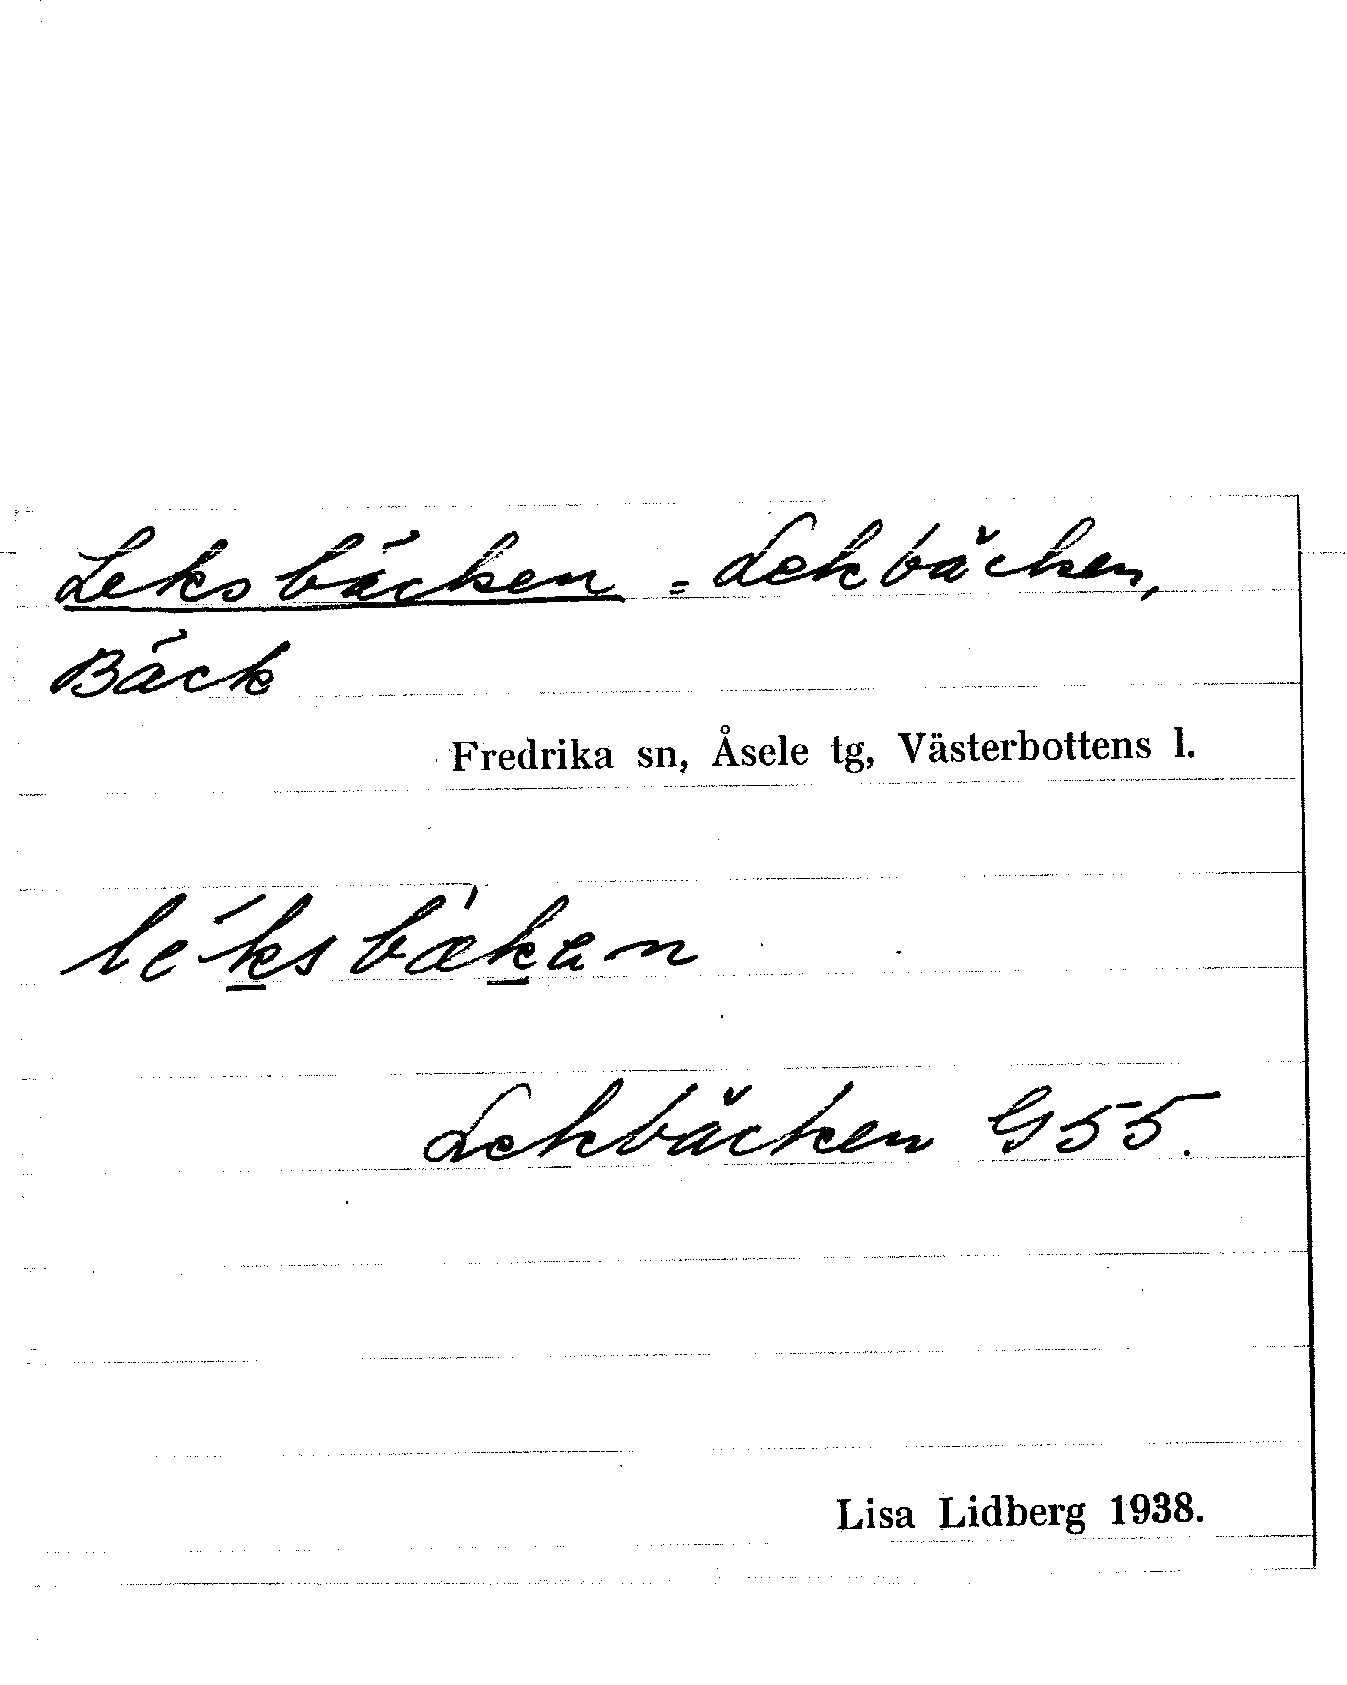 Leksbäcken = Lekbäcken,
Bäck
Fredrika sn, Åsele tg, Västerbottens l.
lék̲sbæ̀k̲an
Lekbäcken G55.
Lisa Lidberg 1938.